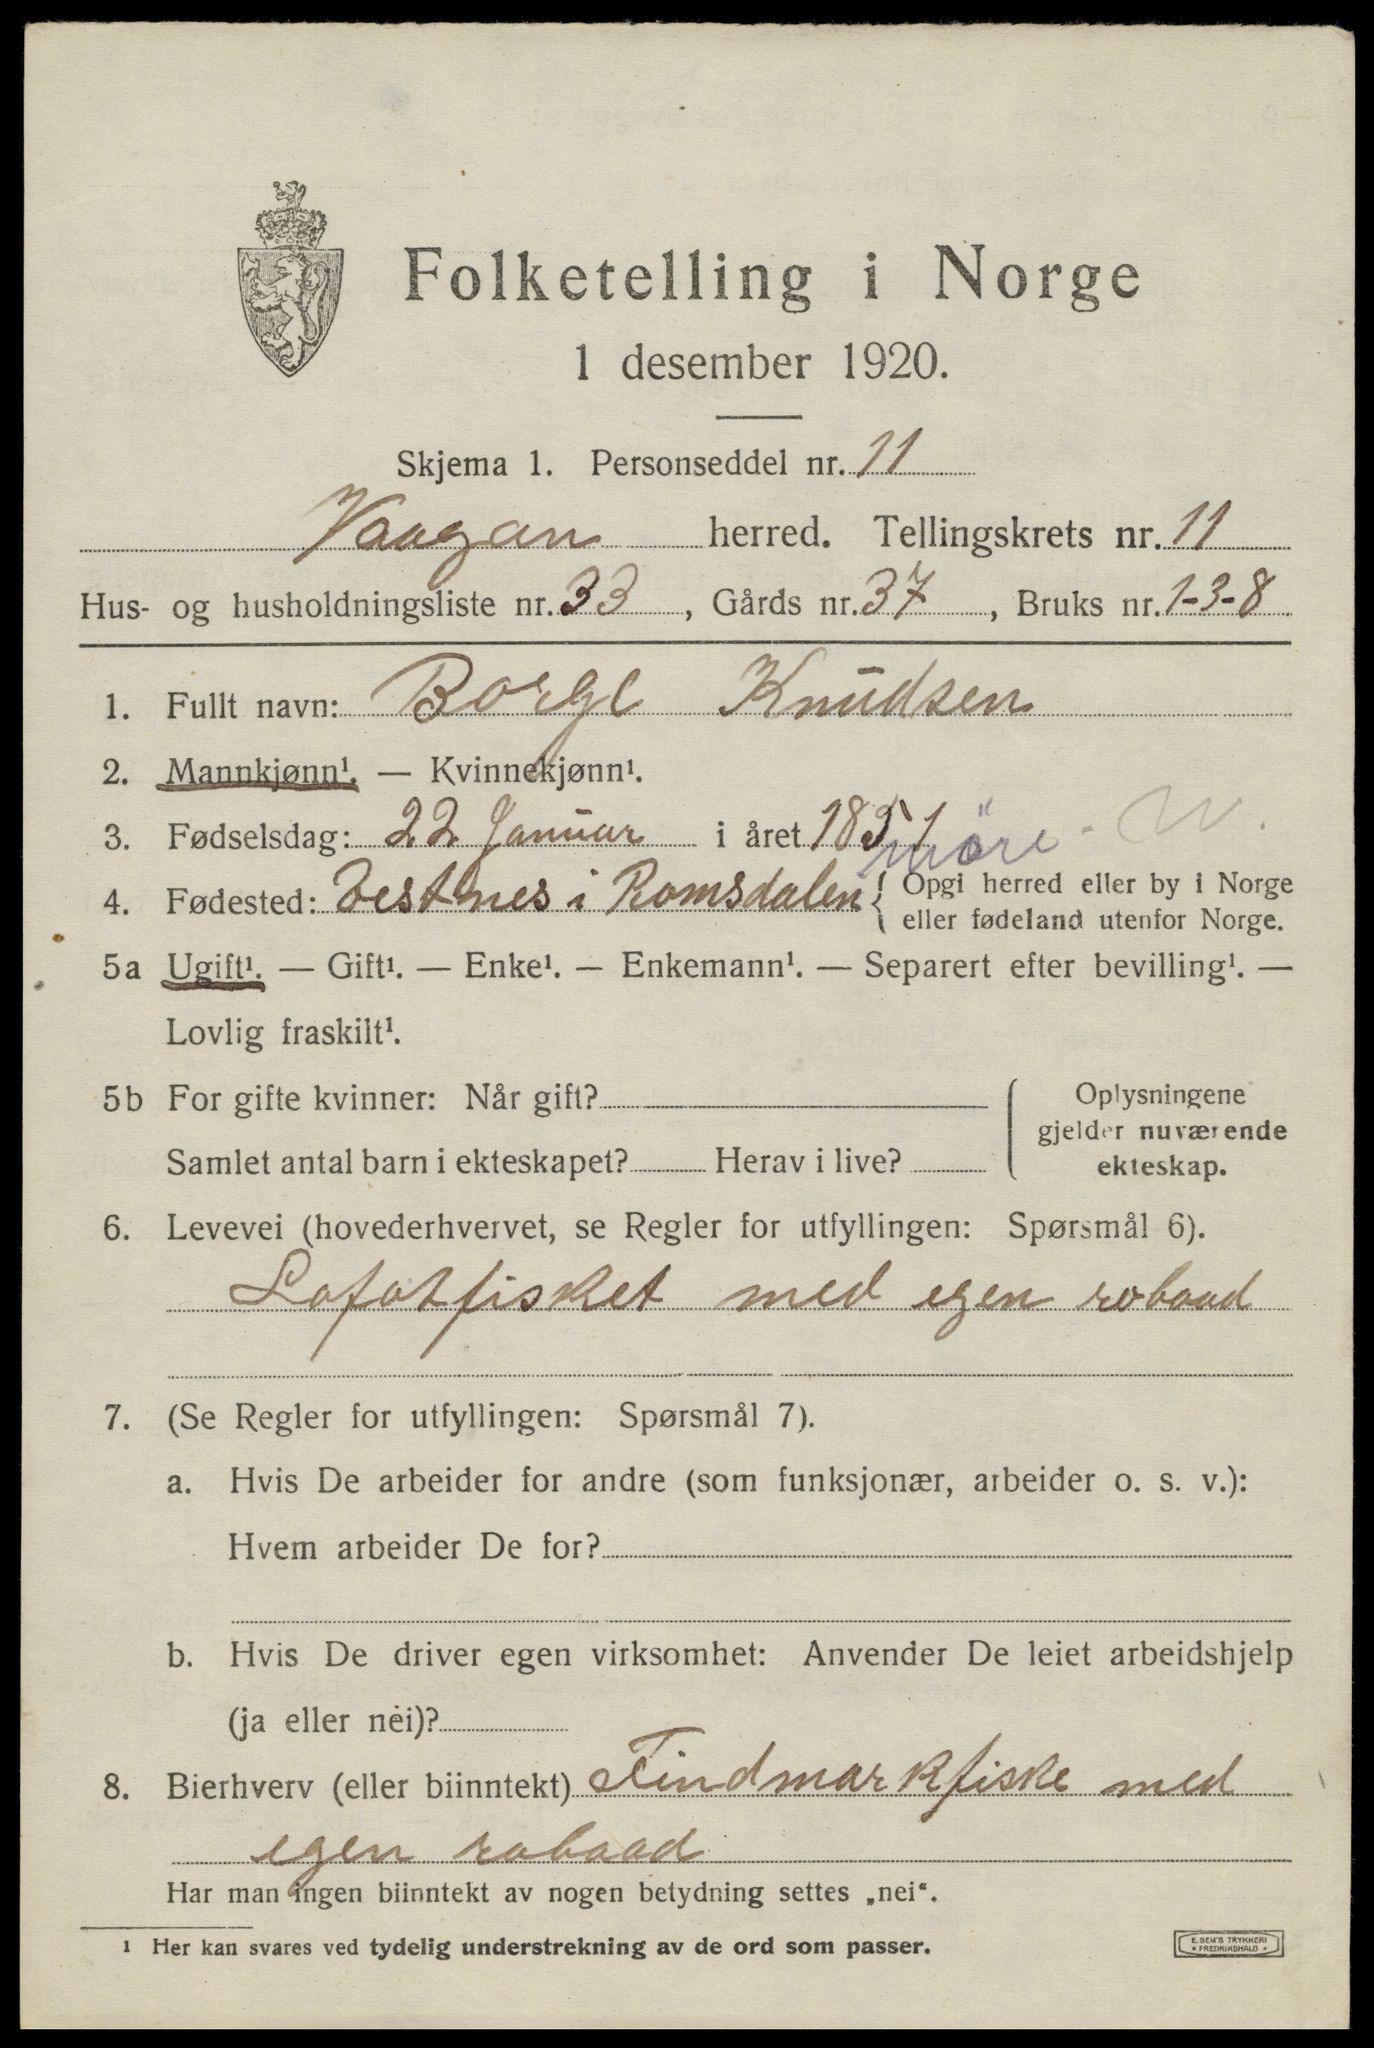 Folketelling i Norge
1 desember 1920.
Skjema 1. Personseddel nr. 11
Vaagan herred. Tellingskrets nr. 11
Hus- og husholdningsliste nr. 33, Gårds nr. 37, Bruks nr. 1-3-8
1. Fullt navn: Borge Knudsen
2. Mannkjønn¹. — Kvinnekjønn¹.
3. Fødselsdag: 22 Januar i året 1851
möre - N.
4. Fødested: Vestnes i Romsdalen { Opgi herred eller by i Norge
eller fødeland utenfor Norge.
5a Ugift¹. — Gift¹. — Enke¹. — Enkemann¹. — Separert efter bevilling¹. —
Lovlig fraskilt¹.
5b For gifte kvinner: Når gift?
Samlet antal barn i ekteskapet? Herav i live?
Oplysningene
gjelder nuværende
ekteskap.
6. Levevei (hovederhvervet, se Regler for utfyllingen: Spørsmål 6).
Lofotfisket med egen robaad
7. (Se Regler for utfyllingen: Spørsmål 7).
a. Hvis De arbeider for andre (som funksjonær, arbeider o. s. v.):
Hvem arbeider De for?
b. Hvis De driver egen virksomhet: Anvender De leiet arbeidshjelp
(ja eller nei)?
8. Bierhverv (eller biinntekt) Findmarkfiske med
egen robaad
Har man ingen biinntekt av nogen betydning settes „nei“.
¹ Her kan svares ved tydelig understrekning av de ord som passer.
E. SEM'S TRYKKERI
• FREDRIKSHALD •